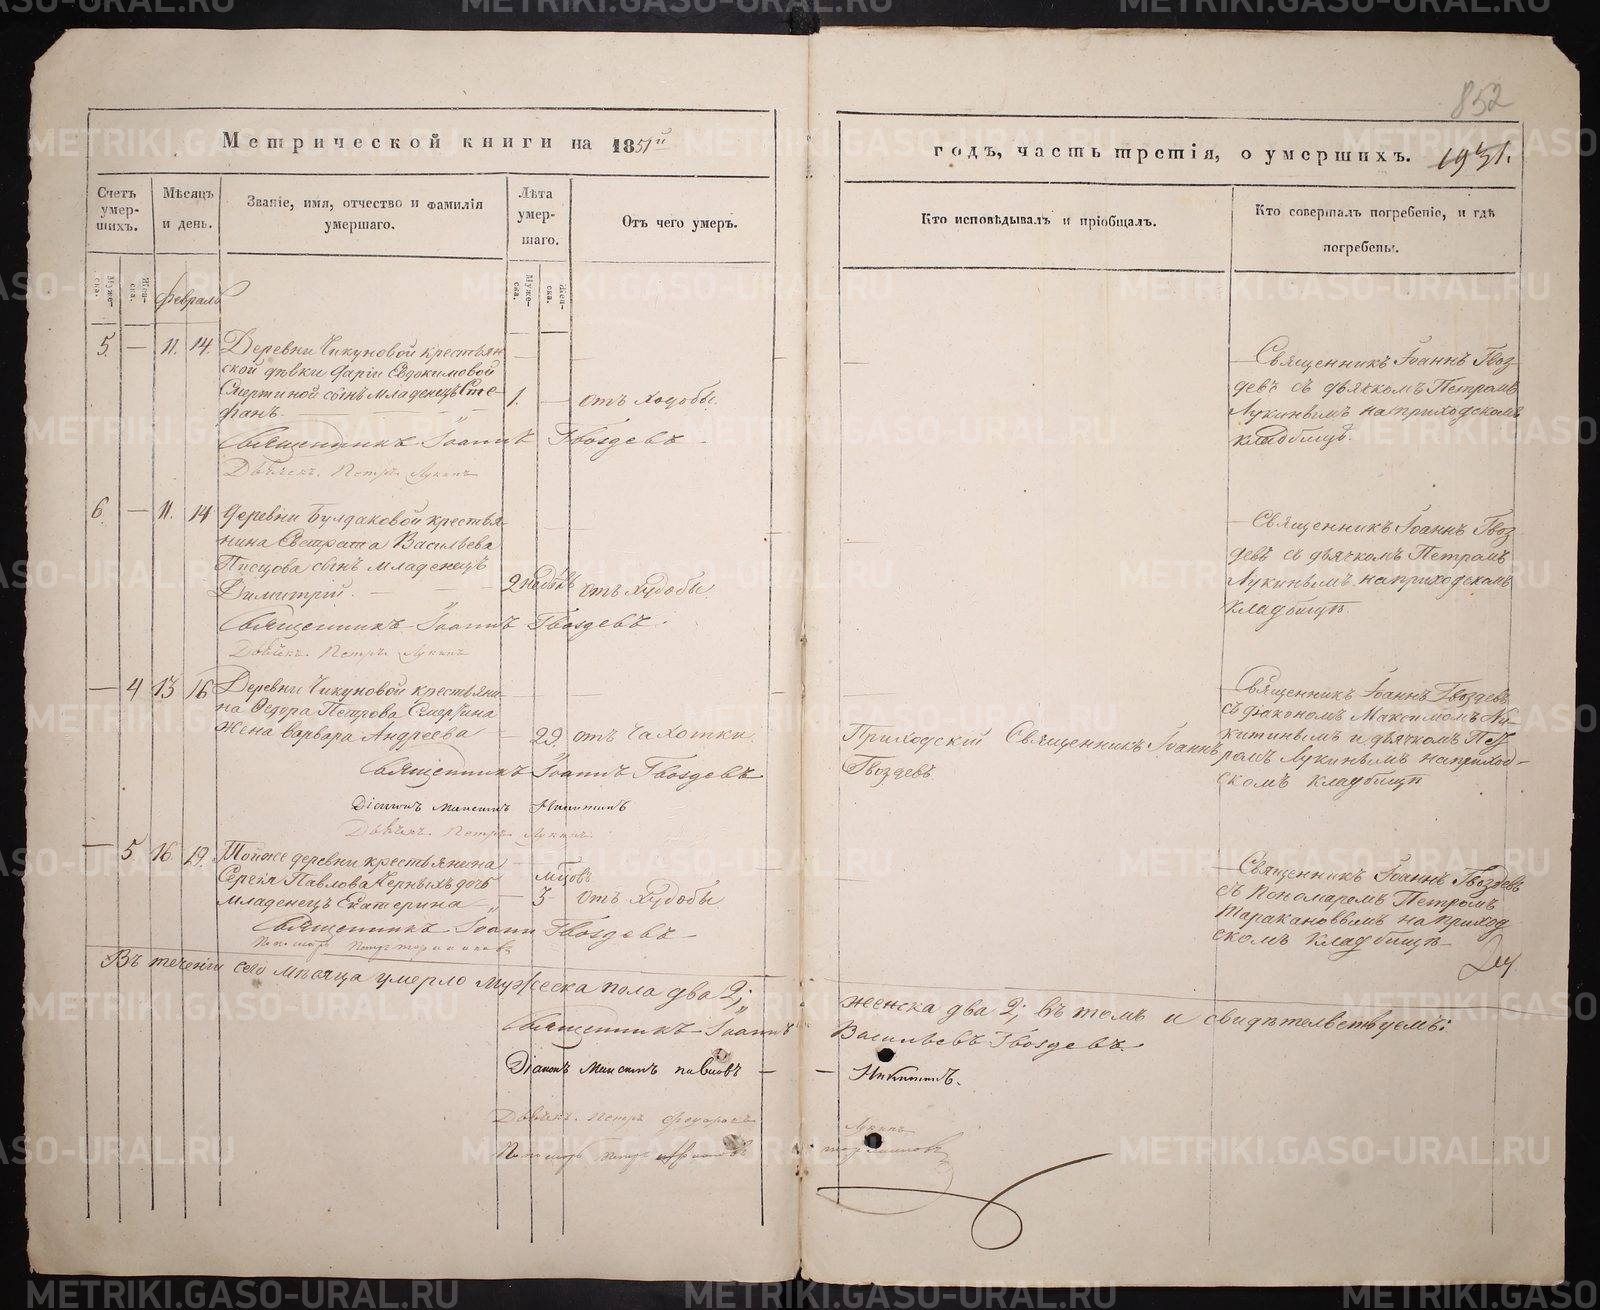 852
Метрической книги на 1851й
годъ, часть третія, о умершихъ.
Счетъ умер-
шихъ.
Мѣсяцъ
и день.
Званіе, имя, отчество и фамилія
умершаго.
Лѣта
умер-
шаго.
Отъ чего умеръ.
Кто исповѣдывалъ и пріобщалъ.
Кто совершалъ погребеніе, и гдѣ
погребены.
Муже-
ска.
Жен-
ска.
Муже-
ска.
Жен-
ска.
Февраль
5. — 11. 14. Деревни Чикуновой крестьян
ской дѣвки Дарьи Евдокимовой
Смертиной сынъ младенецъ Сте-
фанъ. 1. — отъ худобы.
Священникъ Іоаннъ Гвоздевъ
Дьячекъ Петръ Лукинъ
Священникъ Іоаннъ Гвоз-
девъ съ дьячкомъ Петромъ
Лукинымъ на приходскомъ
кладбищѣ.
6. — 11. 14 Деревни Булдаковой крестья-
нина Евстрата Васильева
Писцова сынъ младенецъ
Димитрій. 2 недѣль отъ худобы
Священникъ Іоаннъ Гвоздевъ.
Дьячекъ Петръ Лукинъ
Священникъ Іоаннъ Гвоз
девъ съ дьячкомъ Петромъ
Лукинымъ на приходскомъ
кладбищѣ.
— 4 13 16 Деревни Чикуновой крестьяни-
на Ѳедора Петрова Смертина
жена Варвара Андреева — 29. отъ чахотки
Священникъ Іоаннъ Гвоздевъ
Діаконъ Максимъ Никитинъ
Дьячекъ Петръ Лукинъ.
Приходскій Священникъ Іоаннъ
Гвоздевъ
Священникъ Іоаннъ Гвоздевъ
съ діакономъ Максимомъ Ни-
китинымъ и дьячкомъ Пет
ромъ Лукинымъ на приход-
скомъ кладбищѣ
— 5. 16. 19. Тойже деревни крестьянина
Сергія Павлова Черныхъ дочь
младенецъ Екатерина — мѣсцовъ 3 отъ худобы
Священникъ Іоаннъ Гвоздевъ
Священникъ Іоаннъ Гвоздевъ
съ Пономаремъ Петромъ
Таракановымъ на приход
скомъ кладбищѣ
Въ теченіи сего мѣсяца умерло мужеска пола два 2;
женска два 2; въ томъ и свидѣтельствуемъ:
Священникъ Іоаннъ
Васильевъ Гвоздевъ.
Діаконъ Максимъ Павловъ — — Никитинъ.
Дьячекъ Петръ Ѳедоровъ
Лукинъ
Пономарь
METRIKI.GASO-URAL.RU